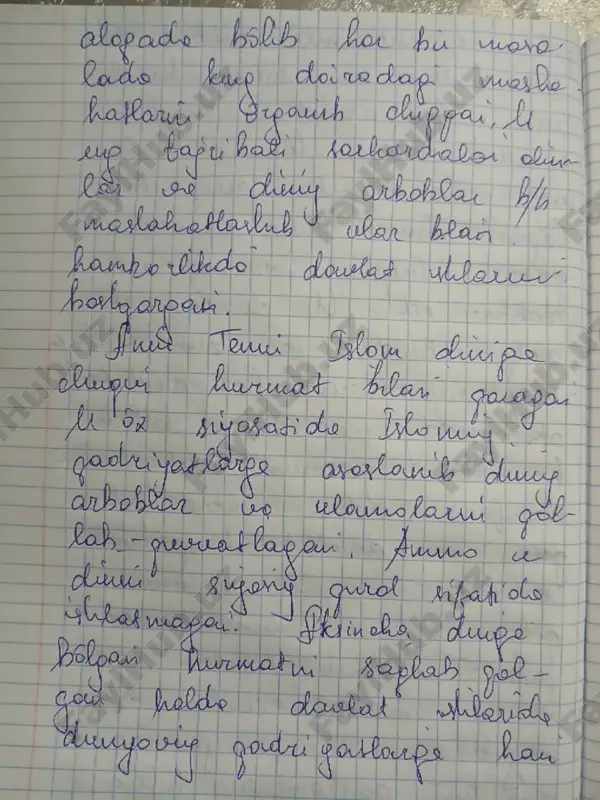 aloqada bölib har bir masa
lada keng doiradagi masla
hatlarni örganib chiqqan, U
eng tajribali sarkardalar olim-
lar va diniy arboblar b/n
maslahatlashib ular bilan
hamkorlikda davlat ishlarini
boshqargan.
Amir Temur Islom diniga
chuqur hurmat bilan qaragan
U öz siyosatida Islomiy
qadriyatlarga asoslanib diniy
arboblar va ulamolarni qöl-
lab-quvvatlagan. Ammo u
dinni siyosiy qurol sifatida
ishlatmagan. Aksincha dinga
bölgan hurmatni saqlab qol-
gan holda davlat ishlarida
dunyoviy qadriyatlarga ham
FaylHub.uz